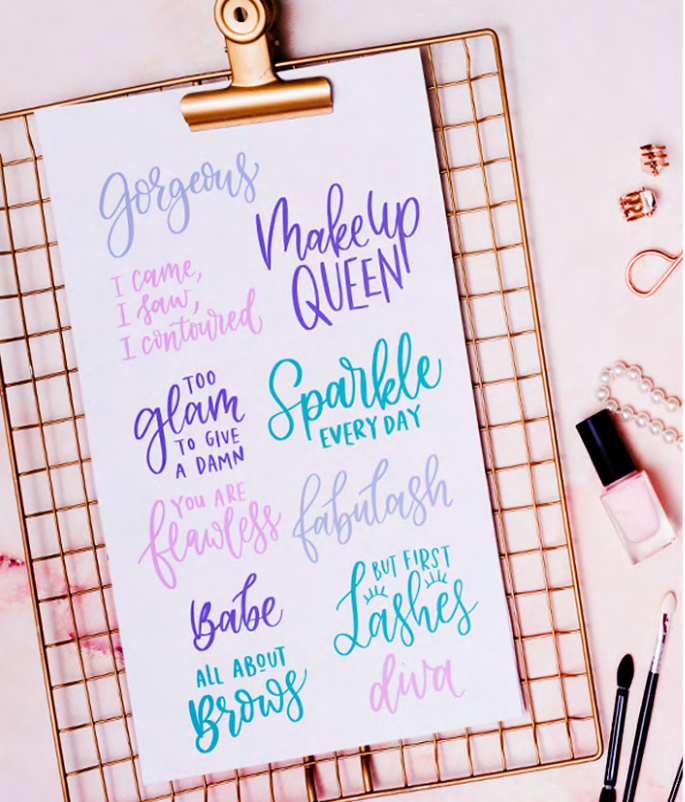 gorgeous
Makeup
QUEEN
I came,
I saw,
I contoured
TOO
glam
TO GIVE
A DAMN
Sparkle
EVERY DAY
YOU ARE
flawless
fabulash
BUT FIRST
Lashes
Babe
ALL ABOUT
Brows
diva